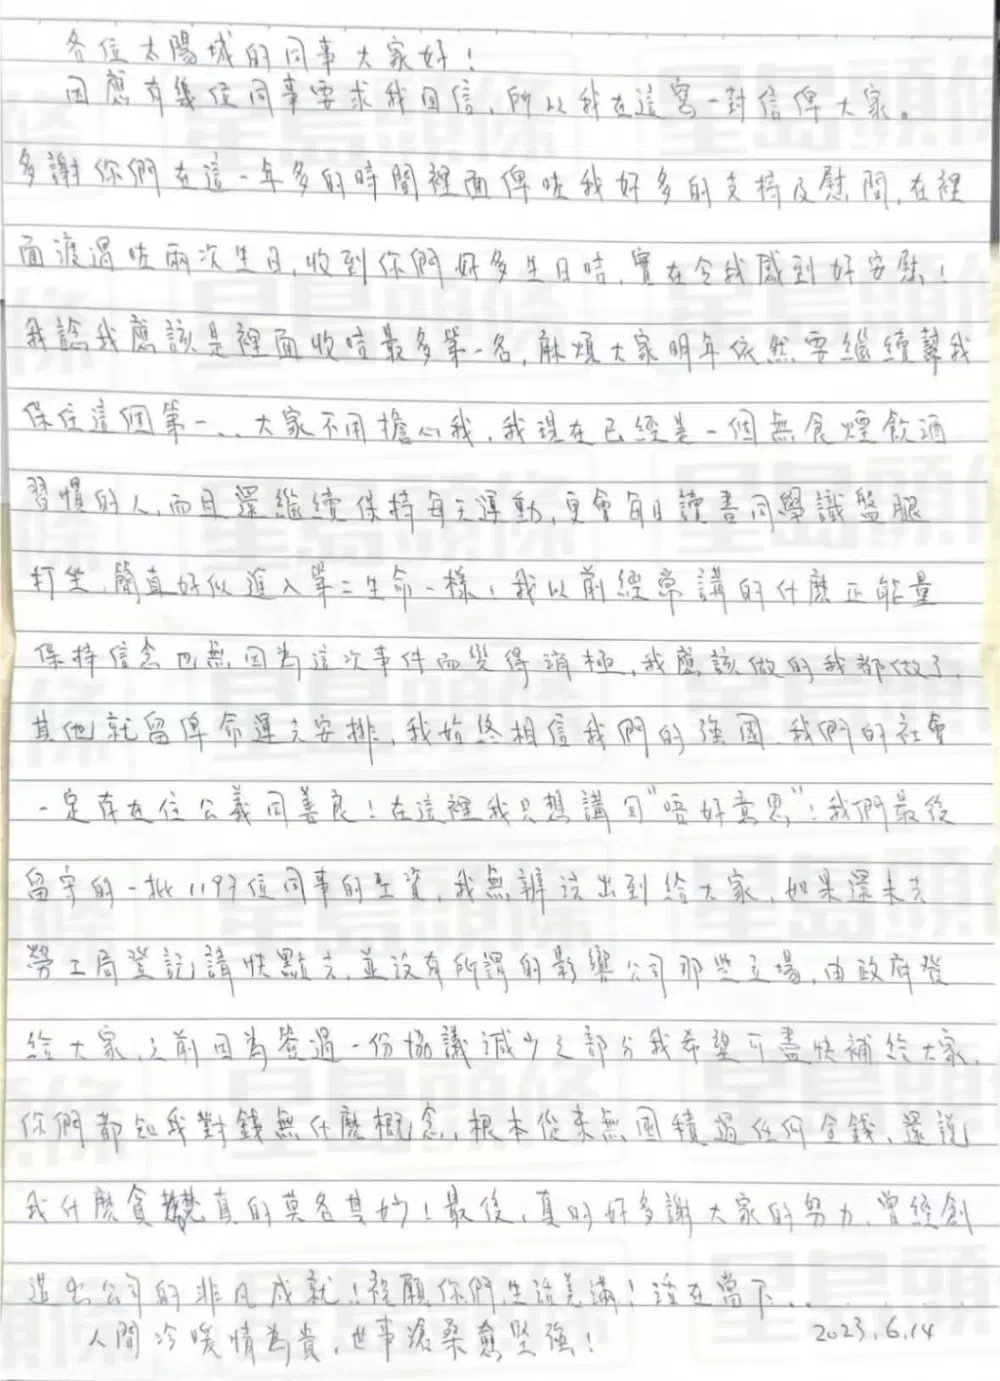 各位太陽城的同事大家好！
因應有幾位同事要求我回信，所以我在這寫一封信俾大家。
多謝你們在這一年多的時間裡面俾咗我好多的支持及慰問，在裡
面渡過咗兩次生日，收到你們好多生日咭，實在令我感到好安慰！
我諗我應該是裡面收咭最多第一名，麻煩大家明年依然要繼續幫我
保住這個第一... 大家不用擔心我，我現在已經是一個無食煙飲酒
習慣的人，而且還繼續保持每天運動，更會每日讀書同學識盤腿
打坐，簡直好似進入第二生命一樣，我以前經常講的什麼正能量
保持信念也無因為這次事件而變得消極，我應該做的我都做了，
其他就留俾命運去安排，我始終相信我們的強國、我們的社會
一定存在住公義同善良！在這裡我只想講句"唔好意思"！我們最後
留守的一批1197位同事的工資，我無辦法出到給大家，如果還未去
勞工局登記，請快點去，並沒有所謂的影響公司那些立場，由政府發
給大家，之前因為簽過一份協議減少之部分我希望可盡快補給大家，
你們都知我對錢無什麼概念，根本從來無囤積過任何金錢，還說
我什麼貪婪真的莫名其妙！最後，真的好多謝大家的努力，曾經創
造出公司的非凡成就！祝願你們生活美滿！活在當下......
人間冷暖情為貴，世事滄桑愈堅強！ 2023.6.14
星島頭條